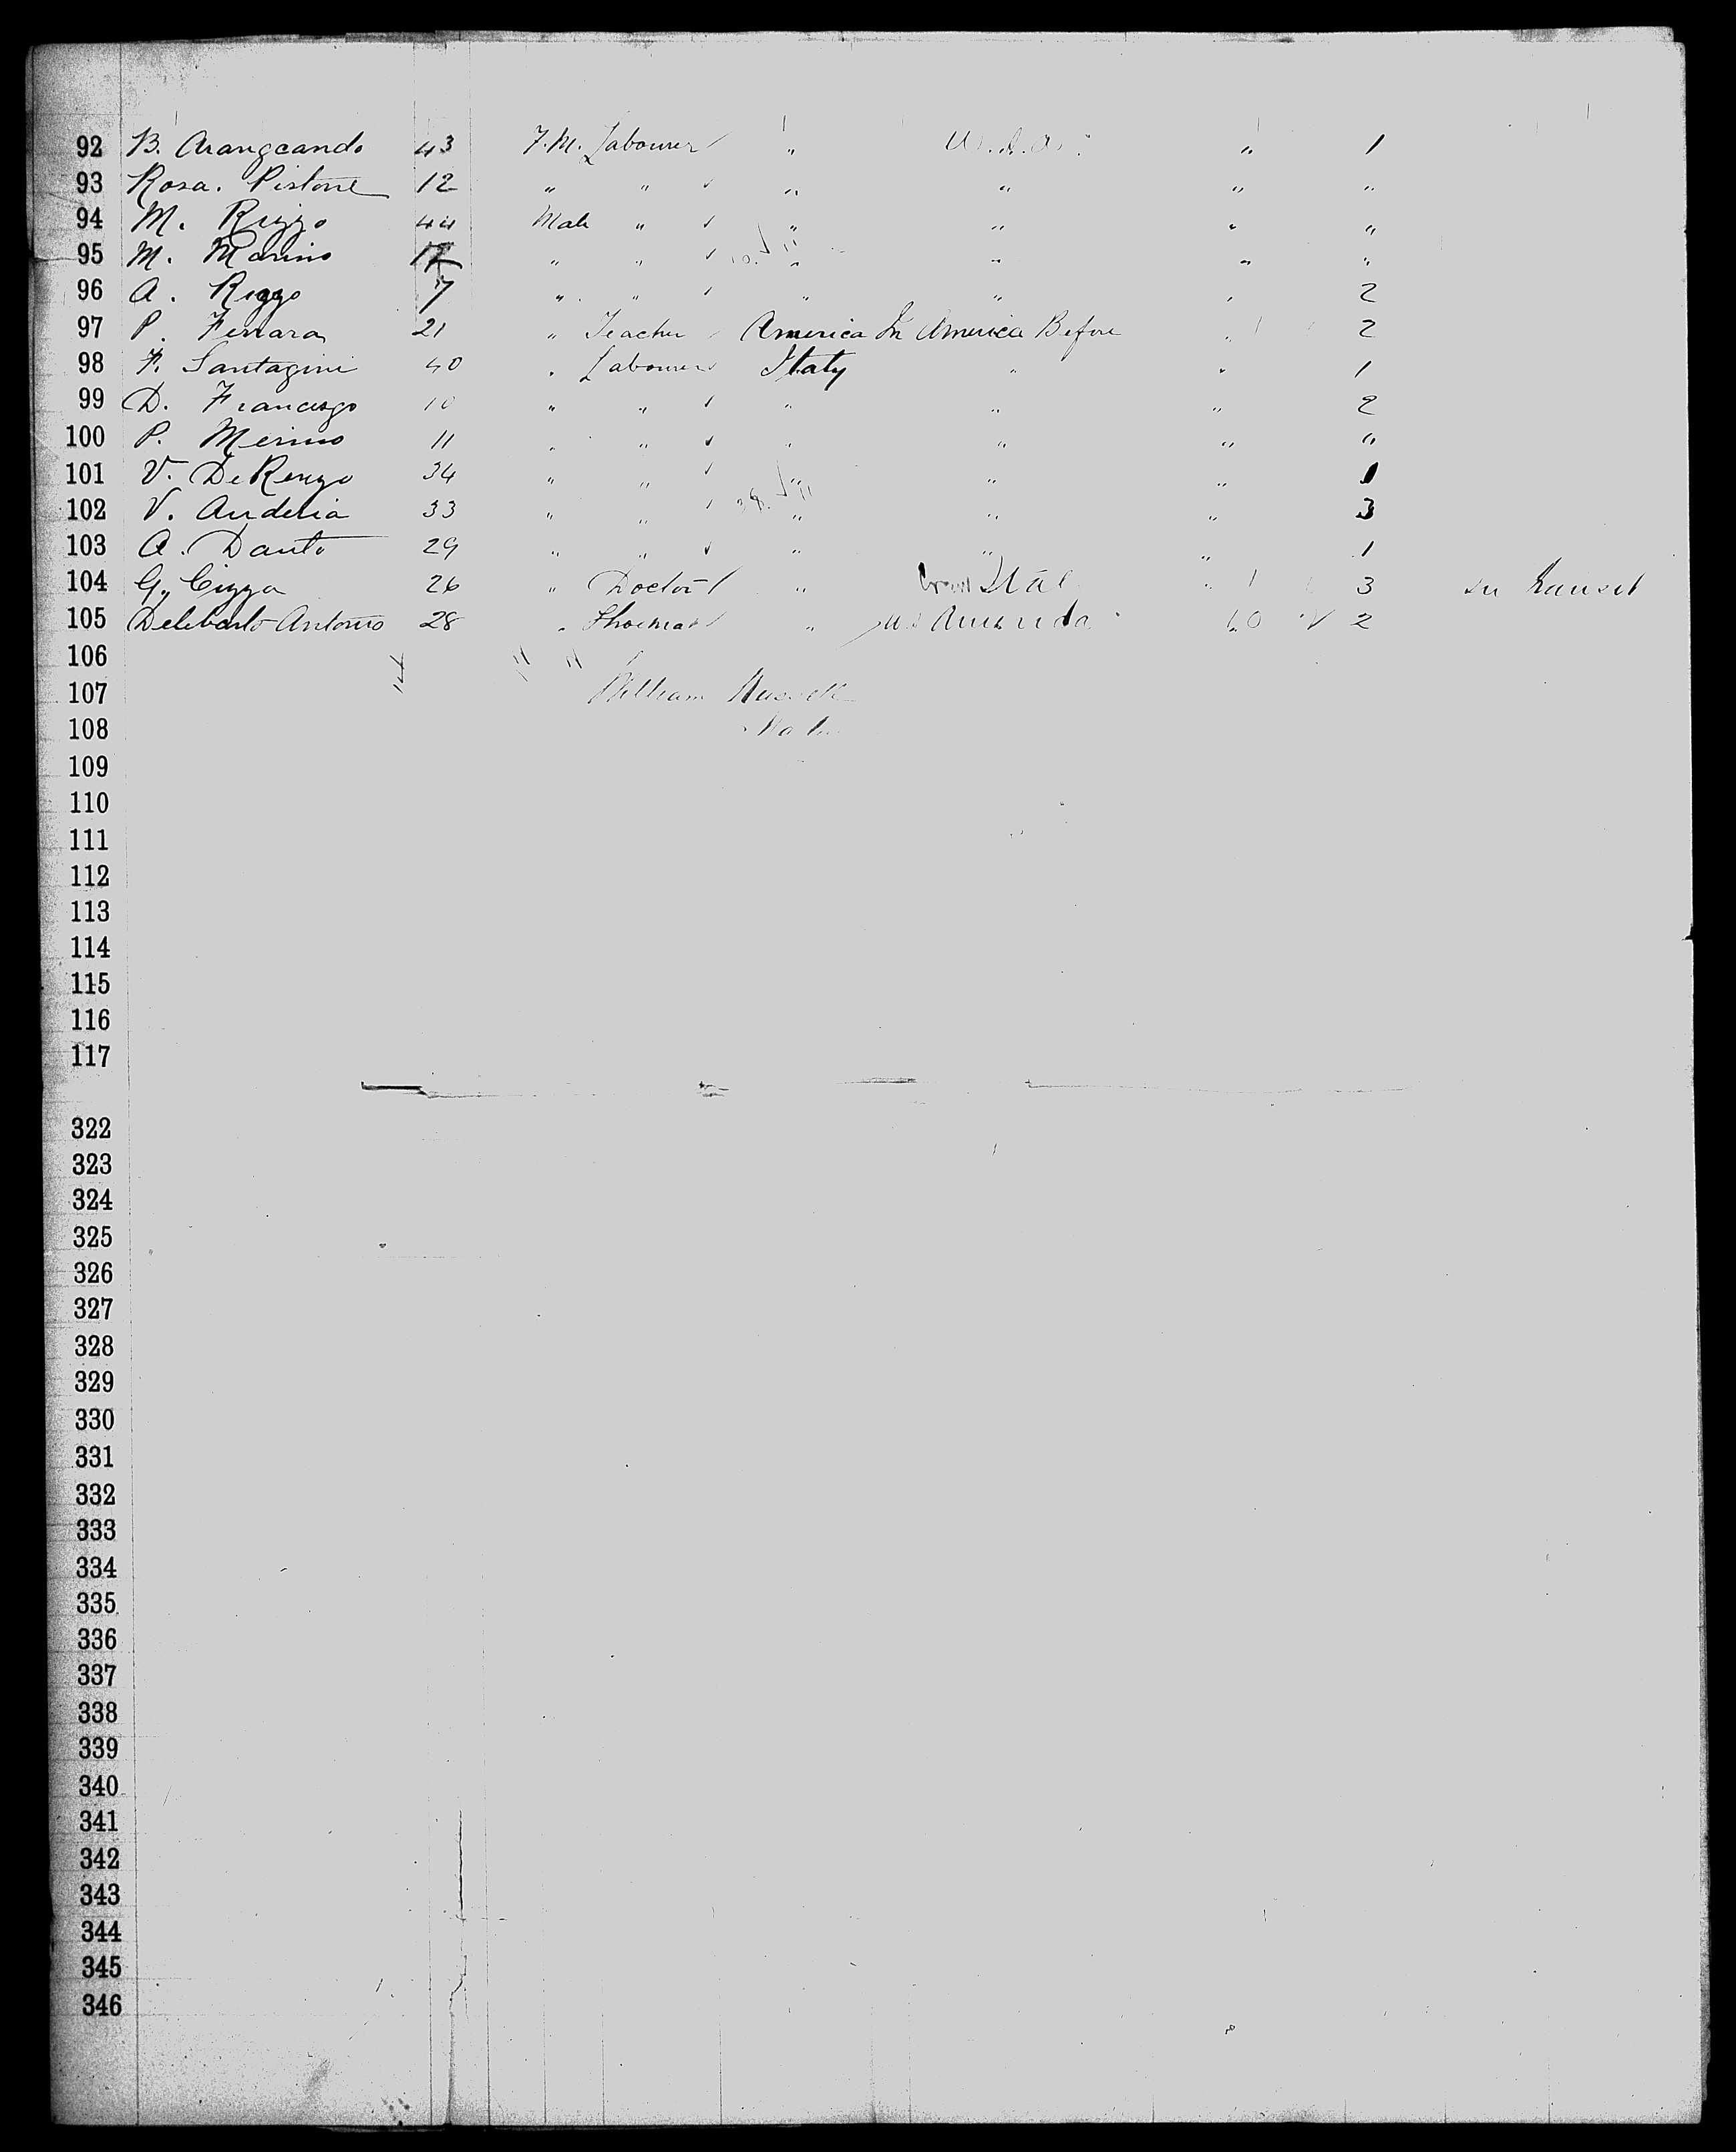 92 B. Arangeando 43 F.M. Labourer " U.S.A. " 1
93 Rosa. Pistone 12 " " " " " "
94 M. Rizzo 44 Male " " " " "
95 M. Marino " " " " " "
96 A. Rizzo 7 " " " " " 2
97 P. Ferrara 21 " Teacher America In America Before " 2
98 F. Santagini 40 " Labourer Italy " " 1
99 D. Francesgo 10 " " " " " 2
100 P. Merino 11 " " " " " "
101 V. De Renzo 34 " " " " " 1
102 V. Anderia 33 " " " " " 3
103 A. Danto 29 " " " " " 1
104 G. Cizza 26 " Doctor " 3
105 Deleberto Antonio 28 " " 2
106
107 William
108
109
110
111
112
113
114
115
116
117
322
323
324
325
326
327
328
329
330
331
332
333
334
335
336
337
338
339
340
341
342
343
344
345
346